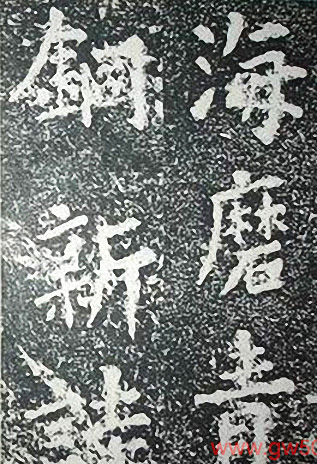 海磨青
銅新詩
www.gw5